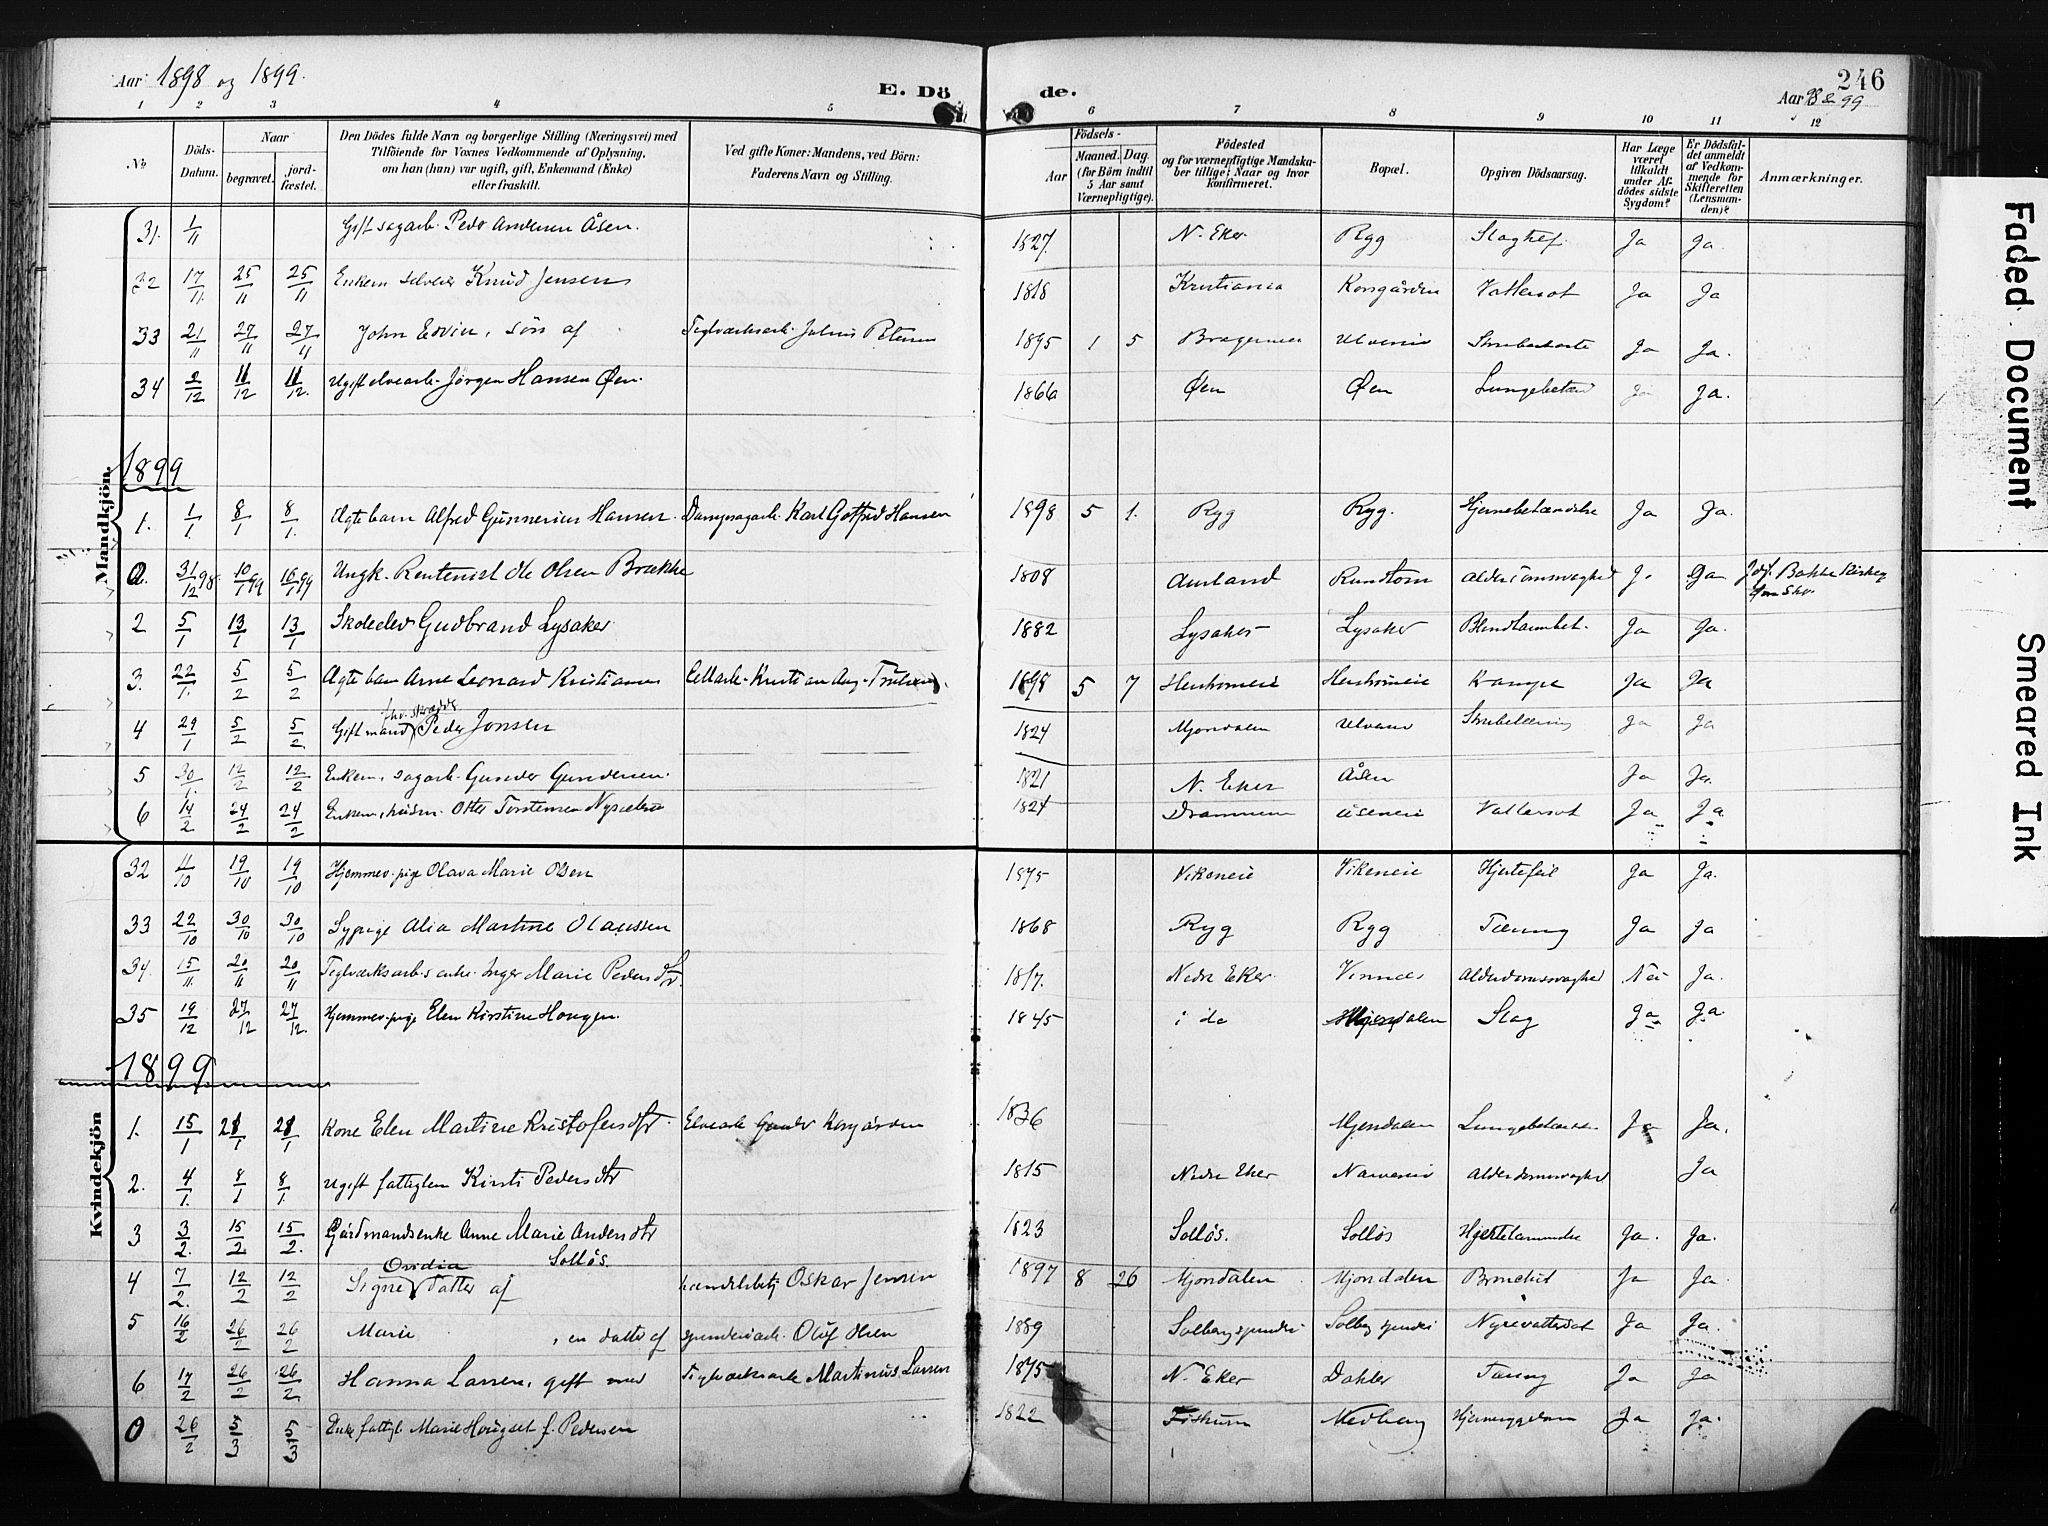 Aar 1898 og 1899.
E. Dö de.
246
Aar 98 & 99
1 2 3 4 5 6 7 8 9 10 11 12
No.
Döds-Datum.
Naar
begravet.
jordfæstet.
Den Dödes fulde Navn og borgerlige Stilling (Næringsvei) med
Tilföiende for Voxnes Vedkommende af Oplysning,
om han (hun) var ugift, gift, Enkemand (Enke)
eller fraskilt.
Ved gifte Koner: Mandens, ved Börn:
Faderens Navn og Stilling.
Födsels-
Aar
Maaned. Dag.
(for Börn indtil
5 Aar samt
Værnepligtige).
Födested
og for værnepligtige Mandska-
ber tillige: Naar og hvor
konfirmeret.
Bopæl.
Opgiven Dödsaarsag.
Har Læge
været
tilkaldt
under Af-
dödes sidste
Sygdom?
Er Dödsfal-
det anmeldt
af Vedkom-
mende for
Skifteretten
(Lensman-
den)?
Anmærkninger.
Mandkjön.
31. 1/11 Gift sagarb. Peder Andersen Åsen. 1827. N. Eker Ryg Ja Ja.
32 17/11 25/11 25/11 Enkem. Knud Jensen 1818 Kristiania Korsgården Vattersot Ja Ja
33 21/11 27/11 27/11 John Edvin, sön af Teglværksarb. Julius Petersen 1895 1 5 Bragernes Ja Ja.
34 2/12 11/12 11/12 Ugift elvearb. Jörgen Hansen Øen. 1866 Øen Øen Lungebetænd Ja Ja.
1899
1. 1/1 8/1 8/1. Ægte barn Alfred Gunnerius Hansen. Dampsagarb. Karl Gotfred Hansen 1898 5 1. Ryg Ryg. Hjernebetændelse Ja Ja.
0. 31/12 98. 10/1 99 10/1 99 Ungk. Rentenist Ole Olsen Brække 1808 Aurland Rundtom Alderdomsvaghed Ja Ja
2 5/1 13/1 13/1 Skoleelev Gudbrand Lysaker 1882 Lysaker Lysaker Blindtarmbet. Ja Ja.
3. 22/1. 5/2 5/2 Ægte barn Arne Leonard Kristiansen Kristian Aug. 1898 5 7 Krampe Ja Ja
4 29/1 5/2 5/2. Gift mand fhv. skrædder Peder Jonsen 1824 Mjondalen Ja Ja
5 30/1. 12/2 12/2 Enkem. sagarb. Gunder Gundersen. 1821 N. Eker Åsen Ja Ja.
6 14/2 24/2 24/2 Enkem. husm. Otter Torstensen 1824 Drammen Åseneie Vattersot Ja Ja
Kvindekjön
32 11/10 19/10 19/10 Hjemmev. pige Olava Marie Olsen 1875 Vikeneie Vikeneie Hjertefeil Ja Ja.
33 22/10 30/10 30/10 Sypige Alia Martine Olaussen 1868 Ryg Ryg Tæring Ja Ja
34. 15/11. 20/11 20/11 Teglværksarb.s enke Inger Marie Pedersdtr. 1817. Nedre Eker Vinnes Alderdomssvaghed Nei Ja.
35 19/12 27/12 27/12. Hjemmev. pige Elen Kirstine Hougen. 1845 i do Mjøndalen Slag Ja Ja
1899
1. 15/1 21/1 21/1 Kone Elen Martine Kristofersdtr. Elvearb Gunder Korsgården 1836 Mjøndalen Lungebetænd. Ja Ja.
2. 4/1. 8/1 8/1. Ugift fattiglem Kirsti Pedersdtr 1815 Nedre Eker Alderdomsvaghed Ja
3 3/2. 15/2. 15/2. Gårdmandsenke Anne Marie Andersdtr
Solløs 1823 Solløs. Solløs Ja. Ja.
4 7/2. 12/2 12/2 Signe Ovidia Datter af handelsbetj Oskar Jensen 1897 8 26 Mjøndalen Mjøndalen Bronchit Ja Ja.
5 16/2 26/2 26/2 Marie, en datter af spinderiarb. Oluf Olsen 1889 Solberg spinderi Solberg spinderi Nyrevattersot Ja Ja.
6 17/2 26/2 26/2. Hanna Larsen, gift med Teglværksarb Martinus Larsen 1875 N. Eker Dahler Tæring Ja Ja
0 26/2 5/3 5/3 Enke fattigl. Marie Hougset f. Pedersen 1822 Fiskum Medberg Ja Ja.
Faded Document
Smeared Ink